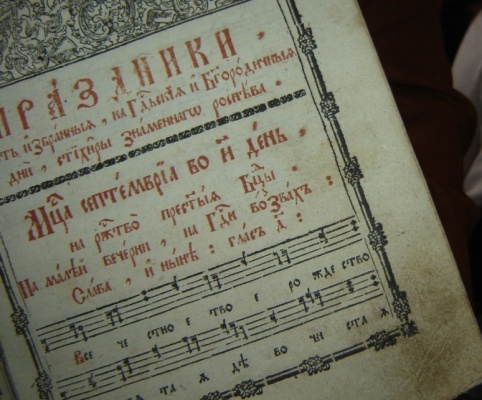 ПРА́ЗДНИКИ .
ст҃ь и҆збра̑нныѧ , на гдⷭ҇кїѧ и҆ бг҃оро́дичныѧ
дни̑ , стїхи̑ры зна́меннагѡ ро́спѣва .
Мцⷭ҇а септе́мврїа во и҃ де́нь .
на рж҃тво̀ прест҃ы́ѧ бц҃ы .
На ма́лѣй вече́рни , на гдⷭ҇и воззва́хъ :
Сла́ва , и҆ ны́нѣ : гла́съ а҃ :
Все че стно е тво е ро жде ство
та ѧ дѣ во чи ста ѧ